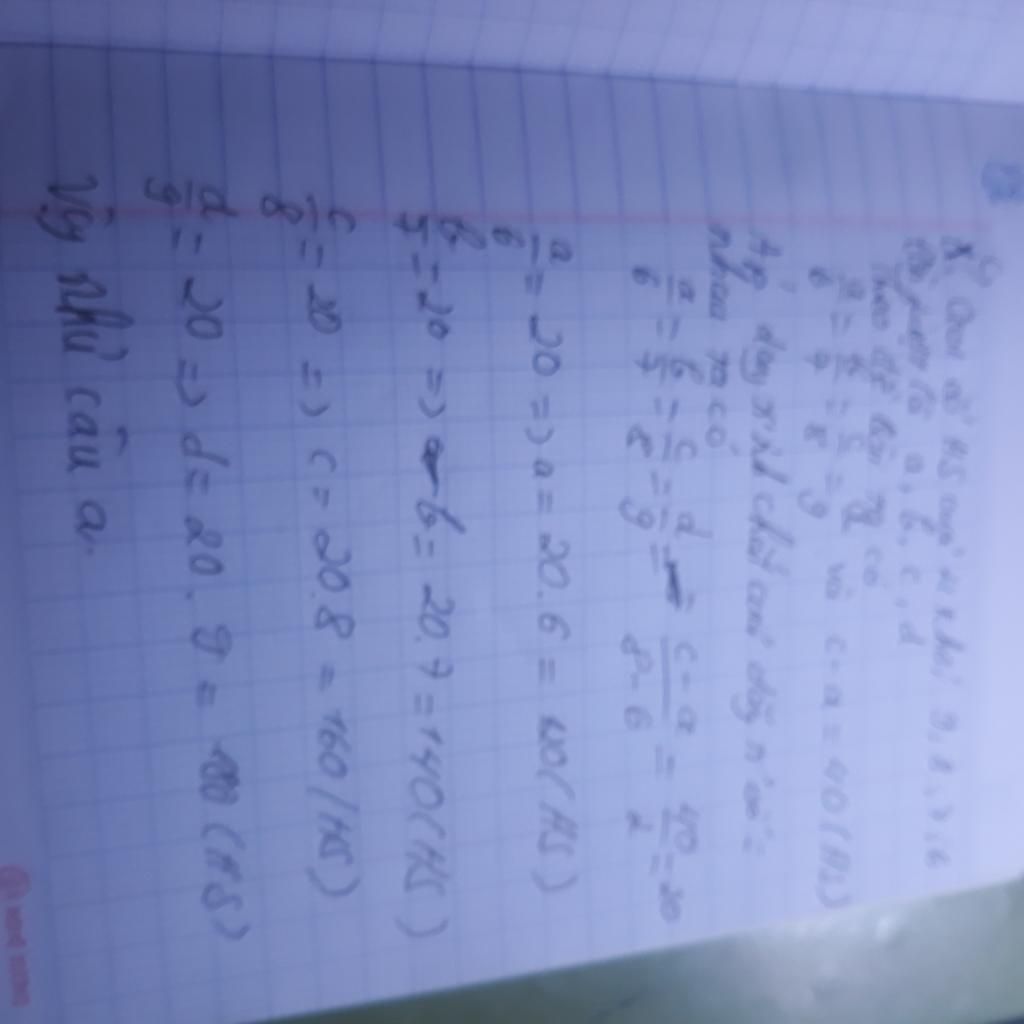 Gọi số HS của 4 khối 9, 8, 7, 6
lần lượt là a, b, c, d
Theo đề bài ta có
a/6 = b/7 = c/8 = d/9 và c - a = 40 (HS)
Áp dụng t/chất của dãy
nhau ta có
a/6 = b/7 = c/8 = d/9 = c-a/8-6 = 40/2 = 20
a/6 = 20 => a = 20.6 = (HS)
b/7 = 20 => b = 20.7 = 140 (HS)
c/8 = 20 => c = 20.8 = 160 (HS)
d/9 = 20 => d = 20.9 = 180 (HS)
Vậy như câu a.